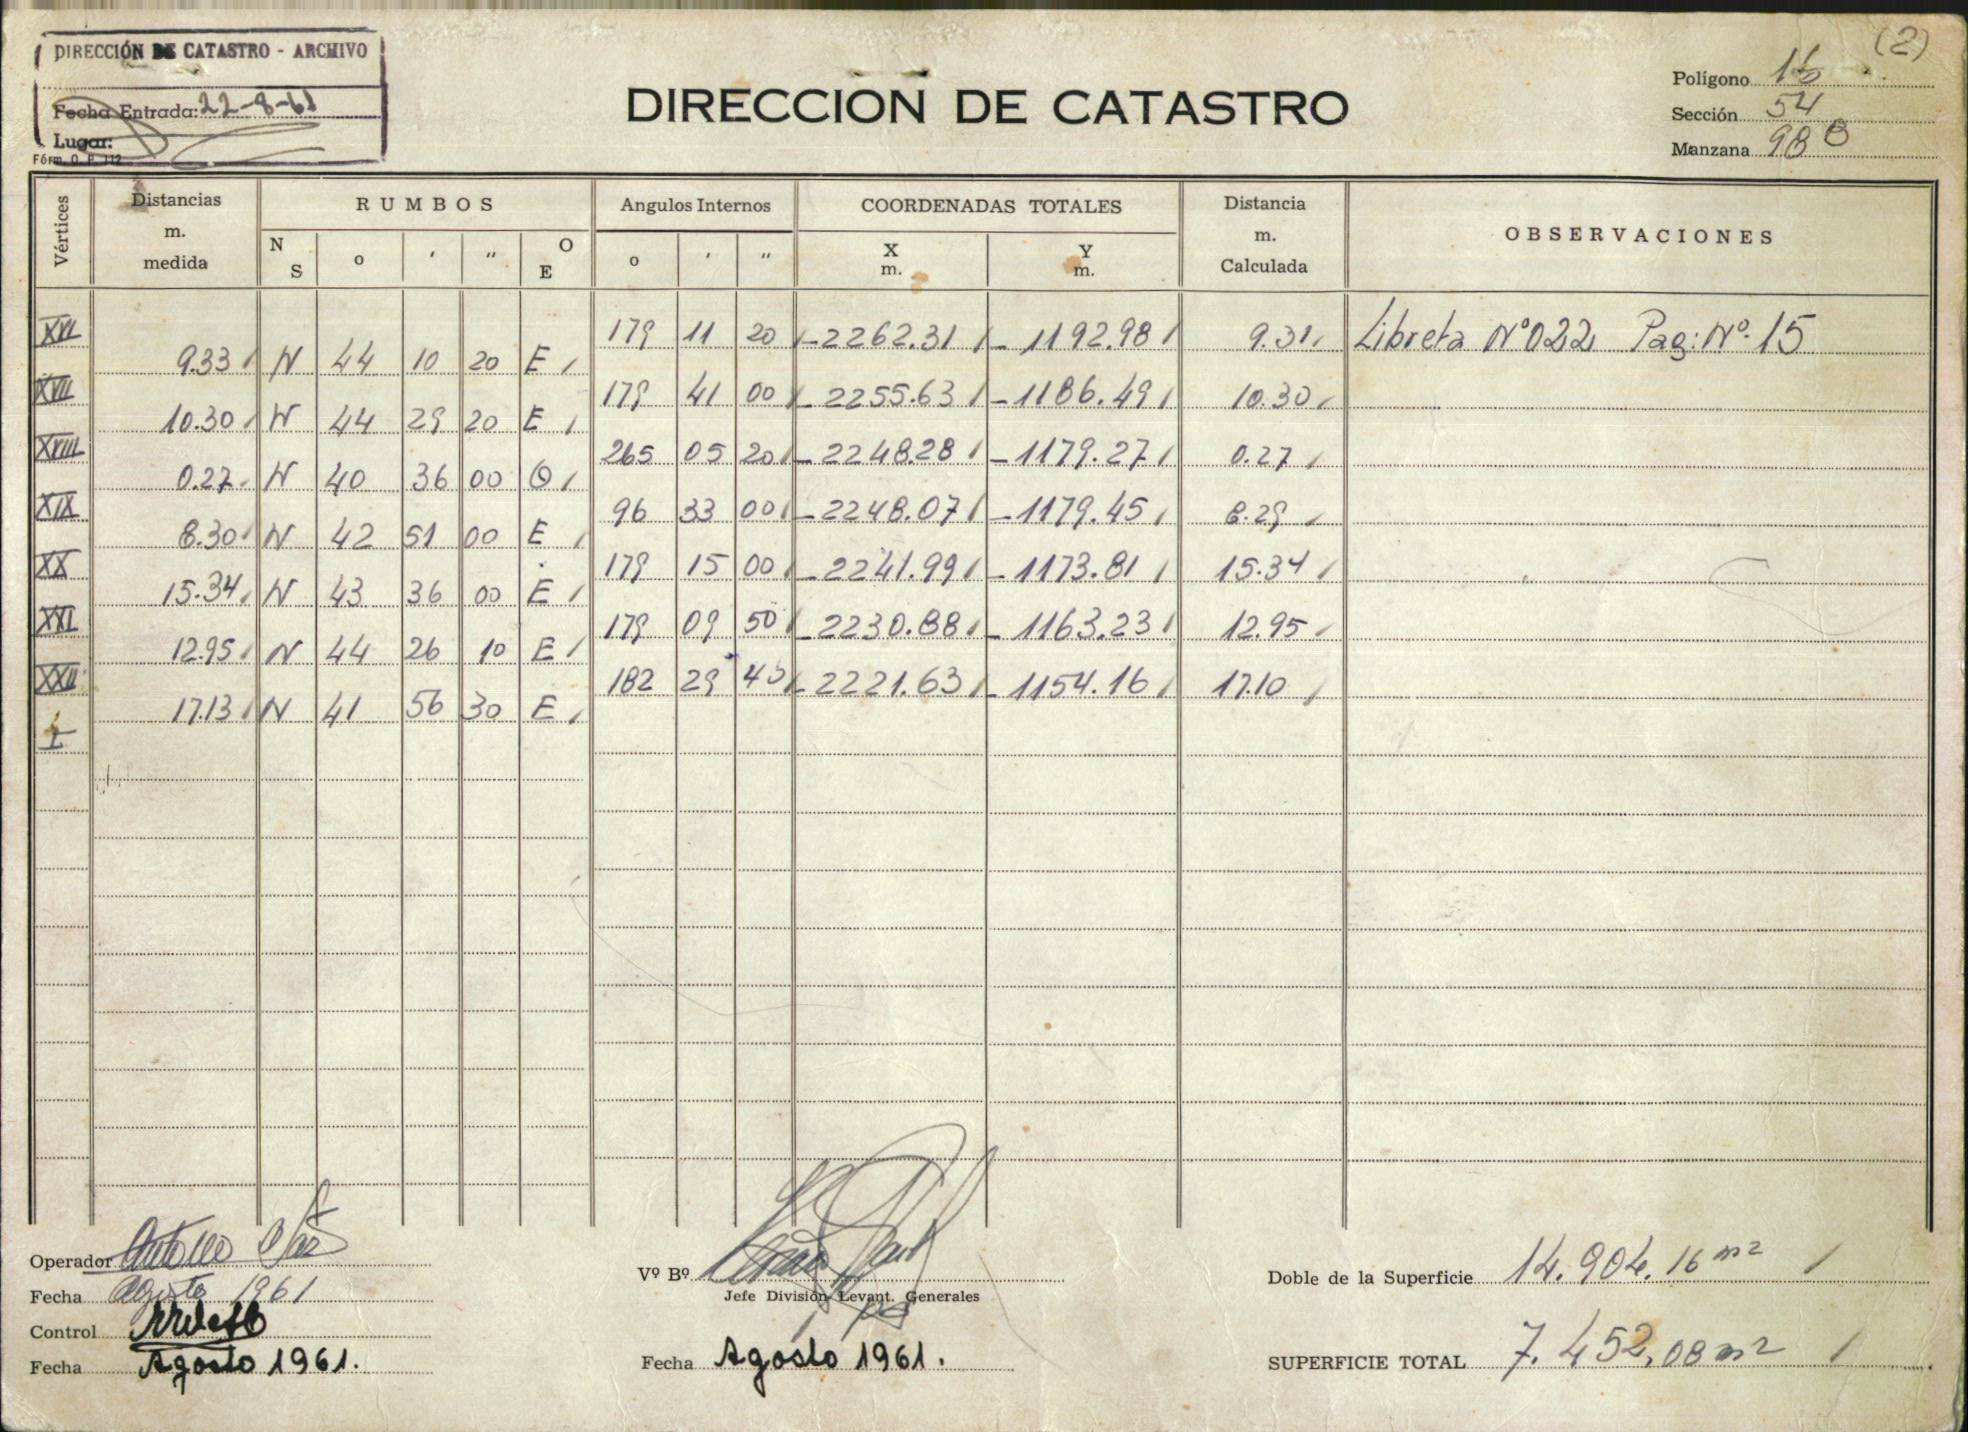 (2)
DIRECCIÓN DE CATASTRO - ARCHIVO
Fecha Entrada: 22-8-61
Lugar:
Fórm. O. P. 112
DIRECCION DE CATASTRO
Polígono
Sección 54
Manzana 98B
Vértices
Distancias m. medida
RUMBOS
N S o ' " O E
Angulos Internos
o ' "
COORDENADAS TOTALES
X m. Y m.
Distancia m. Calculada
OBSERVACIONES
XVI 179 11 20 -2262.31 -1192.98 9.31 Libreta Nº022 Pag: Nº. 15
9.33 N 44 10 20 E
XVII 179 41 00 -2255.63 -1186.49 10.30
10.30 N 44 29 20 E
XVIII 265 05 20 -2248.28 -1179.27 0.27
0.27 N 40 36 00 O
XIX 96 33 00 -2248.07 -1179.45 8.29
8.30 N 42 51 00 E
XX 179 15 00 -2241.99 -1173.81 15.34
15.34 N 43 36 00 E
XXI 179 09 50 -2230.88 -1163.23 12.95
12.95 N 44 26 10 E
XXII 182 29 40 -2221.63 -1154.16 17.10
17.13 N 41 56 30 E
I
Operador
Fecha Agosto 1961
Control
Fecha Agosto 1961.
Vº Bº
Jefe División Levant. Generales
Fecha Agosto 1961.
Doble de la Superficie 14.904.16 m2
SUPERFICIE TOTAL 7.452,08 m2